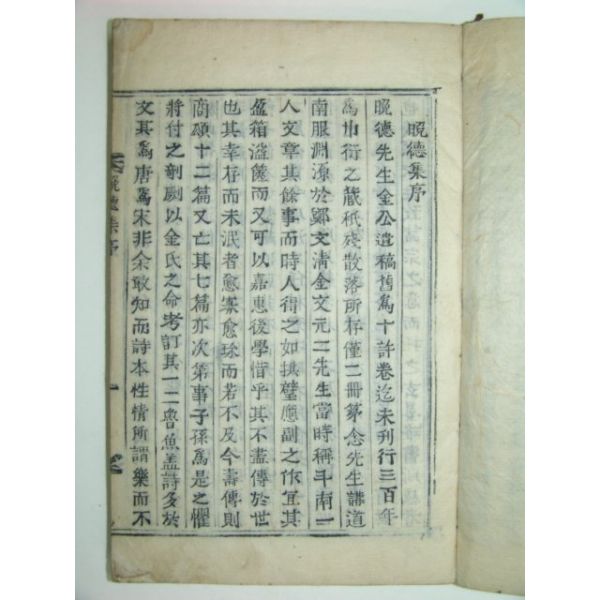 晩德集序
晩德先生金公遺稿舊爲十許卷迄未刊行三百年
爲巾衍之藏秖殘散落所存僅二冊第念先生講道
南服淵源於鄭文淸金文元二先生當時稱斗南一
人文章其餘事而時人得之如拱璧應副之作宜其
盈箱溢篋而又可以嘉惠後學惜乎其不盡傳於世
也其幸存而未泯者愈寡愈珍而若不及今壽傳則
商頌十二篇又亡其七篇亦次第事子孫爲是之懼
將付之剞劂以金氏之命考訂其一二魯魚盖詩多於
文其爲唐爲宋非余敢知而詩本性情所謂樂而不
晩德集序
一